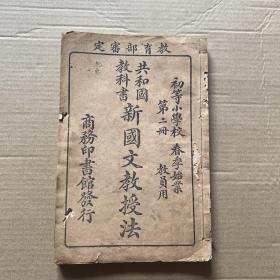 教育部審定
初等小學校 春季始業
第二冊 教員用
共和國
教科書
新國文教授法
商務印書館發行